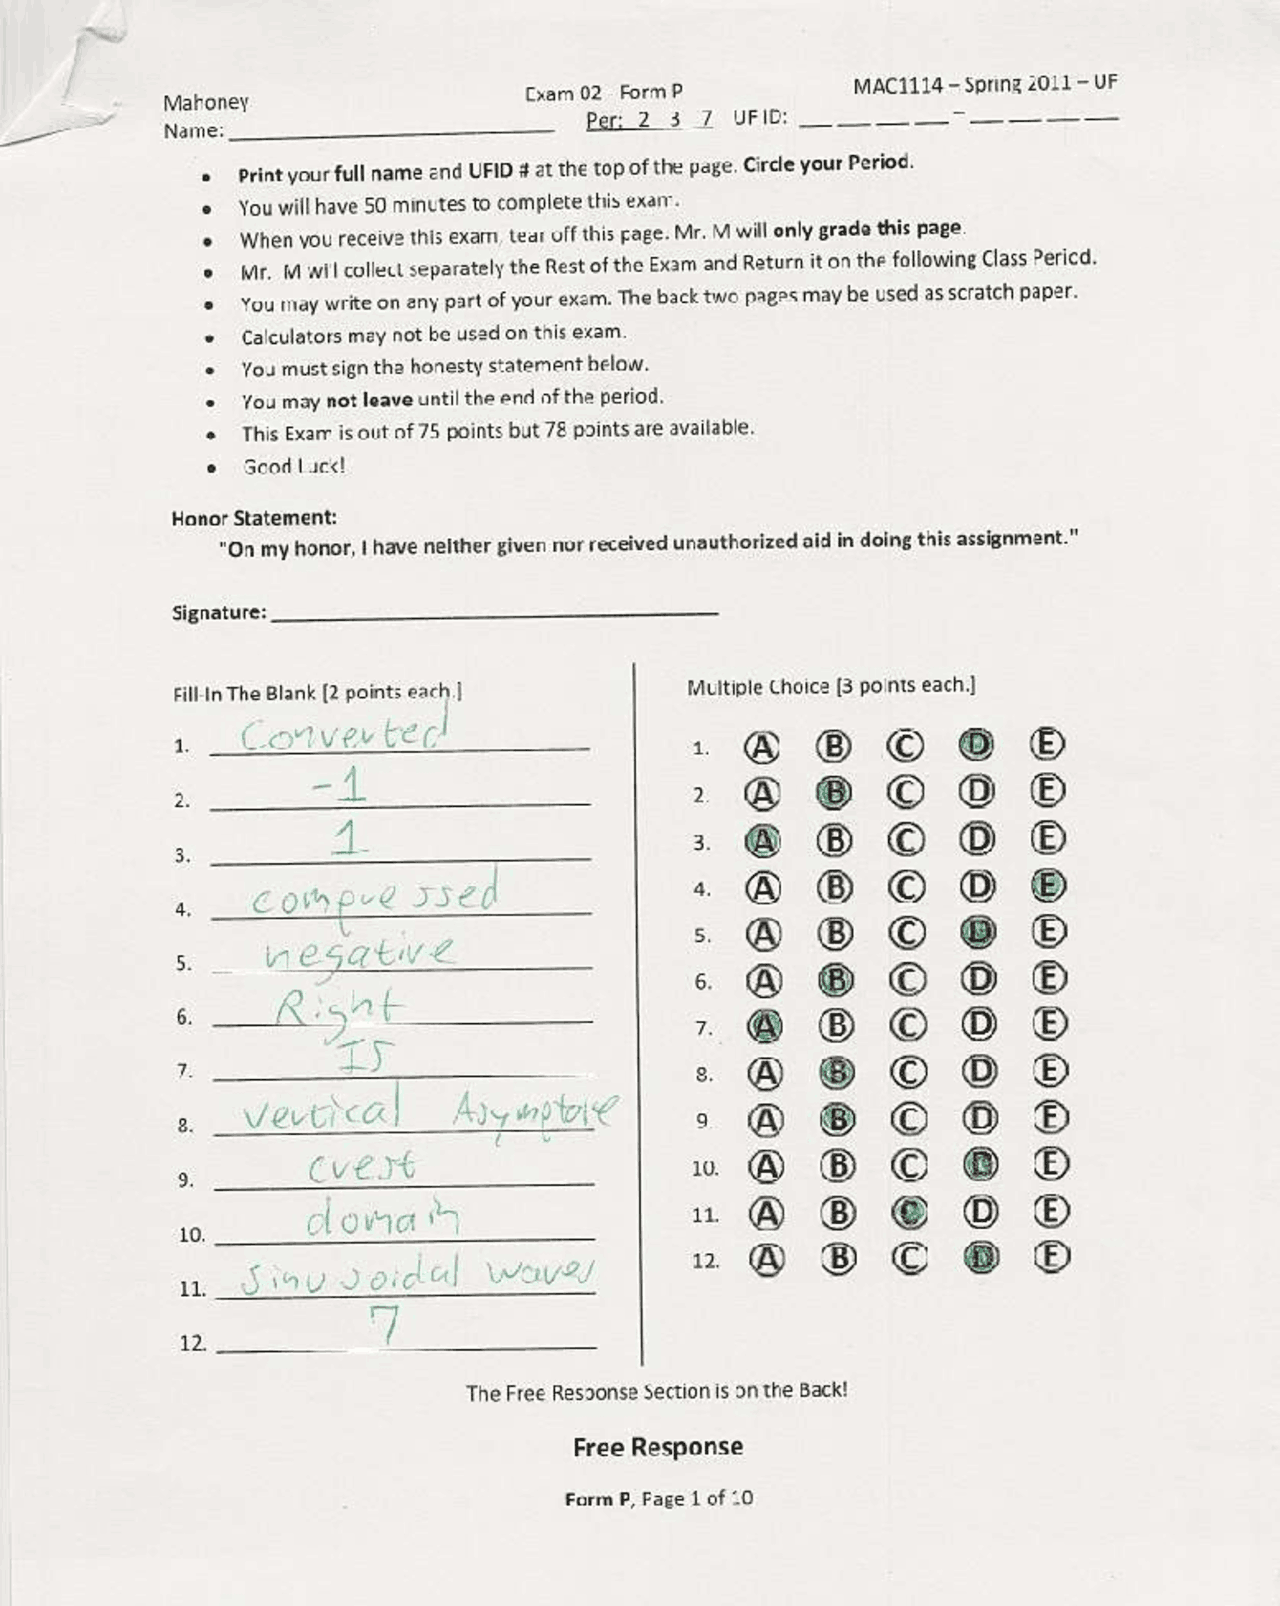 Mahoney Exam 02 Form P MAC1114 – Spring 2011 – UF
Name: Per: 2 3 7 UFID: –
• Print your full name and UFID # at the top of the page. Circle your Period.
• You will have 50 minutes to complete this exam.
• When you receive this exam, tear off this page. Mr. M will only grade this page.
• Mr. M will collect separately the Rest of the Exam and Return it on the following Class Period.
• You may write on any part of your exam. The back two pages may be used as scratch paper.
• Calculators may not be used on this exam.
• You must sign the honesty statement below.
• You may not leave until the end of the period.
• This Exam is out of 75 points but 78 points are available.
• Good Luck!
Honor Statement:
"On my honor, I have neither given nor received unauthorized aid in doing this assignment."
Signature:
Fill-In The Blank [2 points each.]
1. Converted
2. -1
3. 1
4. compressed
5. negative
6. Right
7. IS
8. vertical Asymptote
9. crest
10. domain
11. Sinusoidal waves
12. 7
Multiple Choice [3 points each.]
1. A B C D E
2. A B C D E
3. A B C D E
4. A B C D E
5. A B C D E
6. A B C D E
7. A B C D E
8. A B C D E
9 A B C D E
10. A B C D E
11. A B C D E
12. A B C D E
The Free Response Section is on the Back!
Free Response
Form P, Page 1 of 10